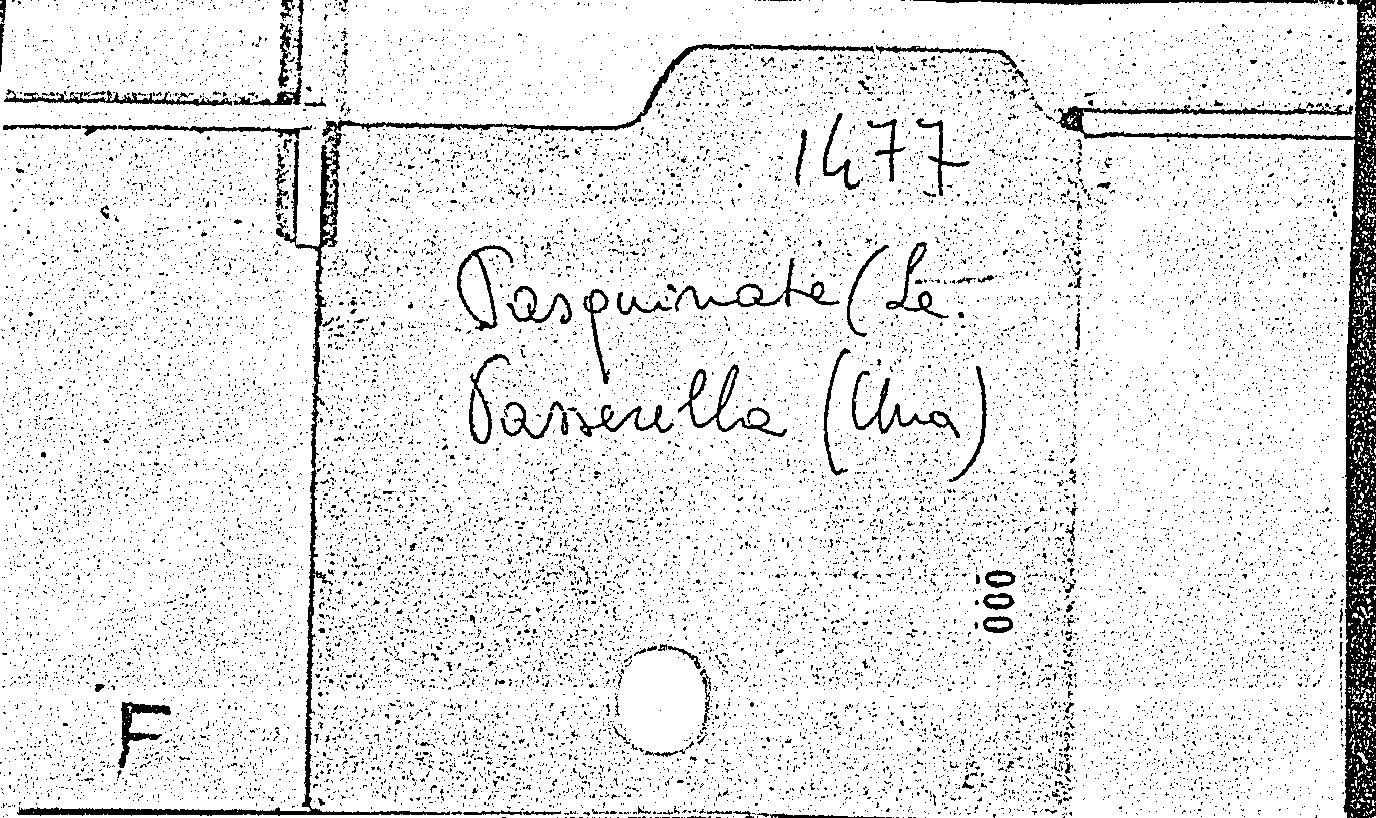 1477
Pasquinate (Le.
Passerella (Una)
000
F